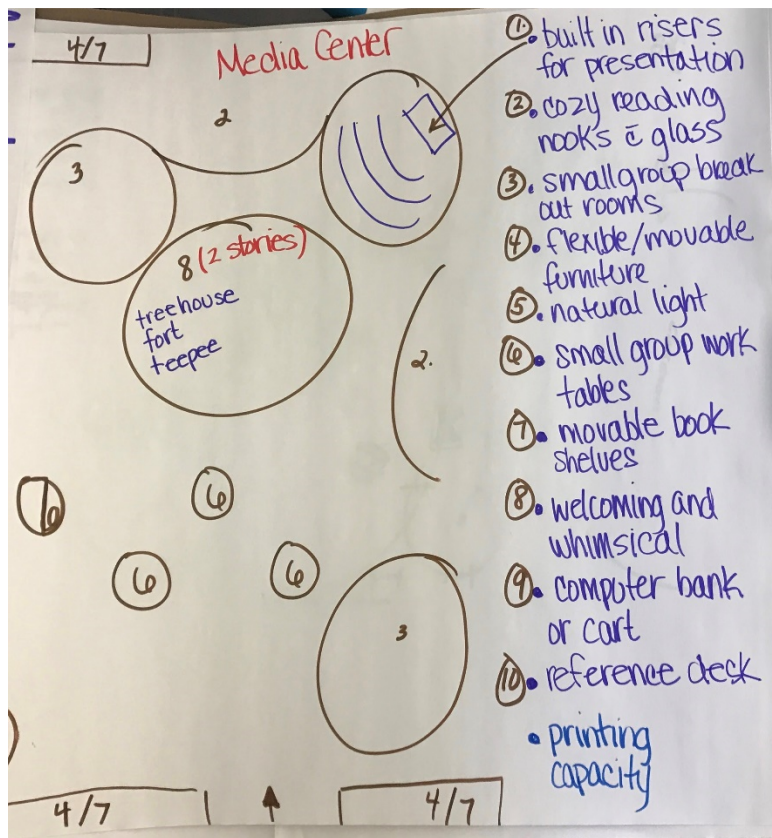 4/7
Media Center
2
3
8 (2 stories)
treehouse
fort
teepee
2.
6
6
6
6
3
4/7
4/7
1. built in risers
for presentation
2. cozy reading
nooks c̄ glass
3. small group break
out rooms
4. flexible/movable
furniture
5. natural light
6. small group work
tables
7. movable book
shelves
8. welcoming and
whimsical
9. computer bank
or cart
10. reference desk
• printing
capacity